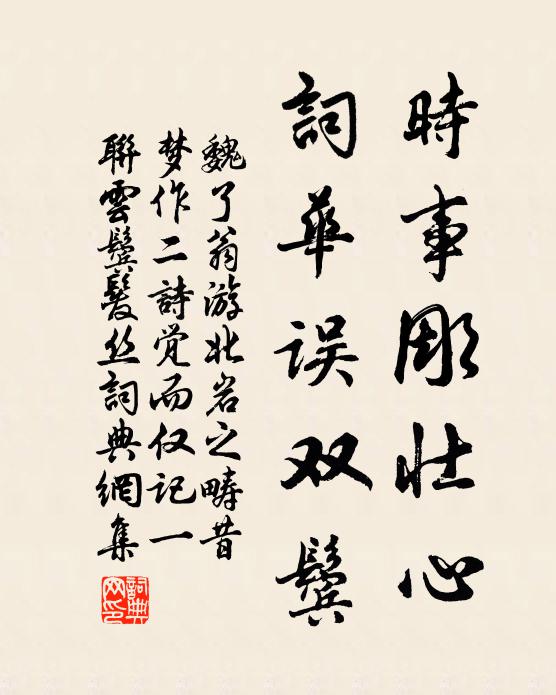 時事彫壮心
詞華误双鬓
魏了翁游北岩之畴昔
梦作二詩觉而仅记一
聯雲鬓髪丝詞典網集
詞典网印